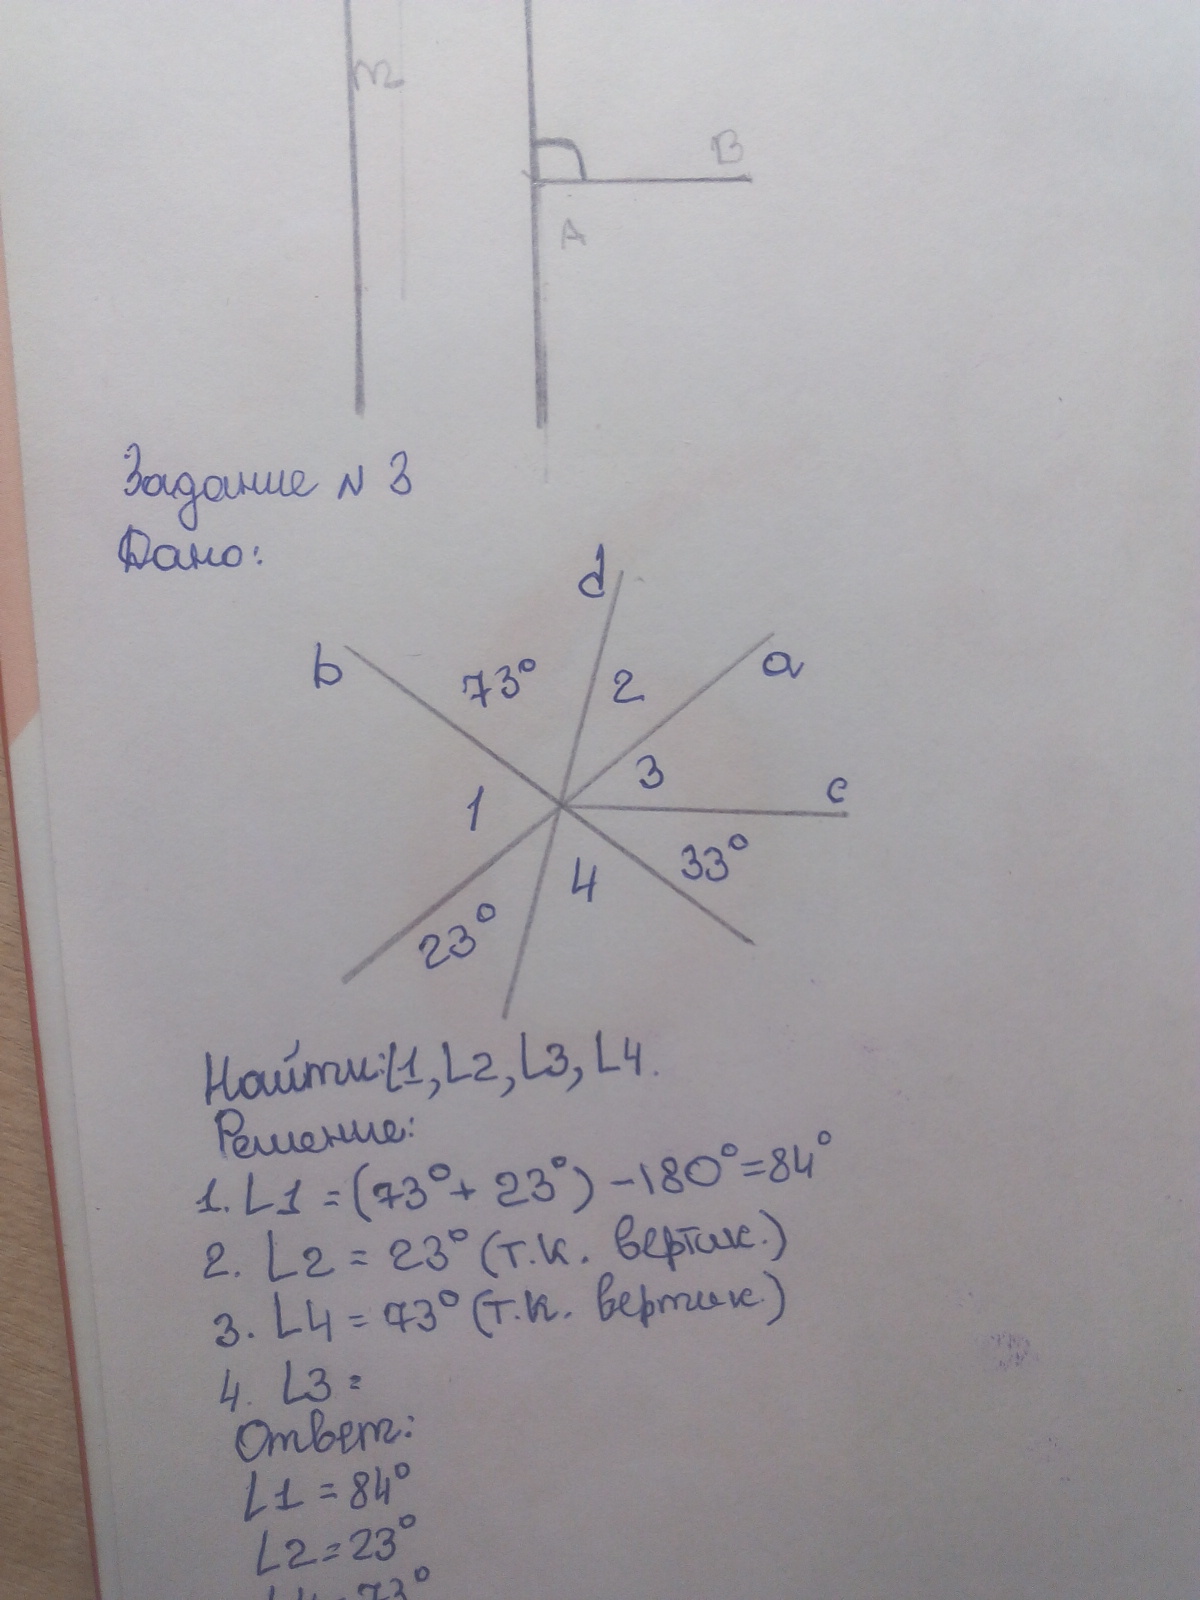 m
B
A
Задание N 3
Дано:
d
b
73°
2
a
3
c
1
33°
4
23°
Найти: L1, L2, L3, L4.
Решение:
1. L1 = (73° + 23°) - 180° = 84°
2. L2 = 23° (т.к. вертик.)
3. L4 = 73° (т.к. вертик.)
4. L3 =
Ответ:
L1 = 84°
L2 = 23°
L4 = 73°